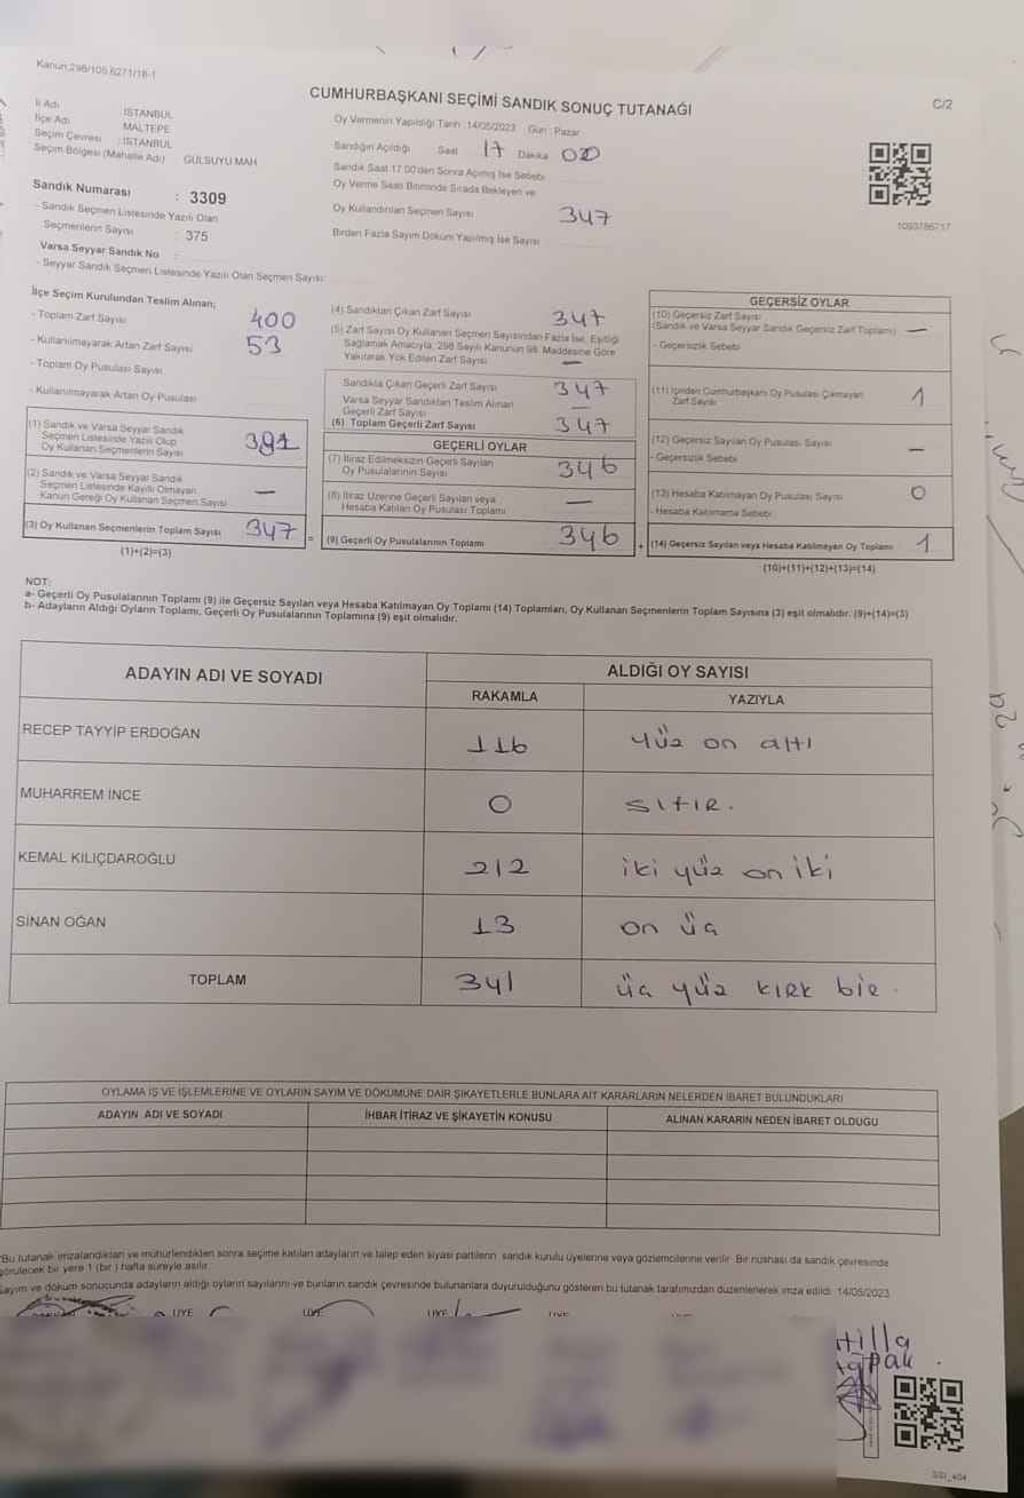 Kanun 298/105 6271/18-1
CUMHURBAŞKANI SEÇİMİ SANDIK SONUÇ TUTANAĞI
C/2
İl Adı : İSTANBUL
İlçe Adı MALTEPE
Seçim Çevresi : İSTANBUL
Seçim Bölgesi (Mahalle Adı) GÜLSUYU MAH
Sandık Numarası : 3309
- Sandık Seçmen Listesinde Yazılı Olan
Seçmenlerin Sayısı : 375
Varsa Seyyar Sandık No :
- Seyyar Sandık Seçmen Listesinde Yazılı Olan Seçmen Sayısı:
Oy Vermenin Yapıldığı Tarih :14/05/2023 Gün : Pazar
Sandığın Açıldığı Saat 17 Dakika 00
Sandık Saat 17.00'den Sonra Açılmış İse Sebebi
Oy Verme Saati Bitiminde Sırada Bekleyen ve
Oy Kullandırılan Seçmen Sayısı 347
Birden Fazla Sayım Döküm Yapılmış İse Sayısı
1093786717
İlçe Seçim Kurulundan Teslim Alınan;
- Toplam Zarf Sayısı 400
- Kullanılmayarak Artan Zarf Sayısı 53
- Toplam Oy Pusulası Sayısı
- Kullanılmayarak Artan Oy Pusulası
(1) Sandık ve Varsa Seyyar Sandık
Seçmen Listesinde Yazılı Olup
Oy Kullanan Seçmenlerin Sayısı
(2) Sandık ve Varsa Seyyar Sandık
Seçmen Listesinde Kayıtlı Olmayan
Kanun Gereği Oy Kullanan Seçmen Sayısı —
(3) Oy Kullanan Seçmenlerin Toplam Sayısı 347
(1)+(2)=(3)
(4) Sandıktan Çıkan Zarf Sayısı 347
(5) Zarf Sayısı Oy Kullanan Seçmen Sayısından Fazla İse, Eşitliği
Sağlamak Amacıyla, 298 Sayılı Kanunun 98. Maddesine Göre
Yakılarak Yok Edilen Zarf Sayısı —
Sandıkta Çıkan Geçerli Zarf Sayısı 347
Varsa Seyyar Sandıktan Teslim Alınan
Geçerli Zarf Sayısı —
(6) Toplam Geçerli Zarf Sayısı 347
GEÇERLİ OYLAR
(7) İtiraz Edilmeksizin Geçerli Sayılan
Oy Pusulalarının Sayısı 346
(8) İtiraz Üzerine Geçerli Sayılan veya
Hesaba Katılan Oy Pusulası Toplamı —
(9) Geçerli Oy Pusulalarının Toplamı 346
GEÇERSİZ OYLAR
(10) Geçersiz Zarf Sayısı
(Sandık ve Varsa Seyyar Sandık Geçersiz Zarf Toplamı) —
- Geçersizlik Sebebi
(11) İçinden Cumhurbaşkanı Oy Pusulası Çıkmayan
Zarf Sayısı 1
(12) Geçersiz Sayılan Oy Pusulası Sayısı —
- Geçersizlik Sebebi
(13) Hesaba Katılmayan Oy Pusulası Sayısı 0
- Hesaba Katılmama Sebebi
(14) Geçersiz Sayılan veya Hesaba Katılmayan Oy Toplamı 1
(10)+(11)+(12)+(13)=(14)
NOT:
a- Geçerli Oy Pusulalarının Toplamı (9) ile Geçersiz Sayılan veya Hesaba Katılmayan Oy Toplamı (14) Toplamları, Oy Kullanan Seçmenlerin Toplam Sayısına (3) eşit olmalıdır. (9)+(14)=(3)
b- Adayların Aldığı Oyların Toplamı, Geçerli Oy Pusulalarının Toplamına (9) eşit olmalıdır.
ADAYIN ADI VE SOYADI
ALDIĞI OY SAYISI
RAKAMLA YAZIYLA
RECEP TAYYİP ERDOĞAN 116 Yüz on altı
MUHARREM İNCE 0 SIFIR.
KEMAL KILIÇDAROĞLU 212 iki yüz on iki
SİNAN OĞAN 13 on üç
TOPLAM 341 üç yüz KIRK bir.
OYLAMA İŞ VE İŞLEMLERİNE VE OYLARIN SAYIM VE DÖKÜMÜNE DAİR ŞİKAYETLERLE BUNLARA AİT KARARLARIN NELERDEN İBARET BULUNDUKLARI
ADAYIN ADI VE SOYADI İHBAR İTİRAZ VE ŞİKAYETİN KONUSU ALINAN KARARIN NEDEN İBARET OLDUĞU
Bu tutanak imzalandıktan ve mühürlendikten sonra seçime katılan adayların ve talep eden siyasi partilerin sandık kurulu üyelerine veya gözlemcilerine verilir. Bir nüshası da sandık çevresinde
görülecek bir yere 1 (bir) hafta süreyle asılır.
Sayım ve döküm sonucunda adayların aldığı oyların sayılarını ve bunların sandık çevresinde bulunanlara duyurulduğunu gösteren bu tutanak tarafımızdan düzenlenerek imza edildi. 14/05/2023
ÜYE ÜYE ÜYE ÜYE